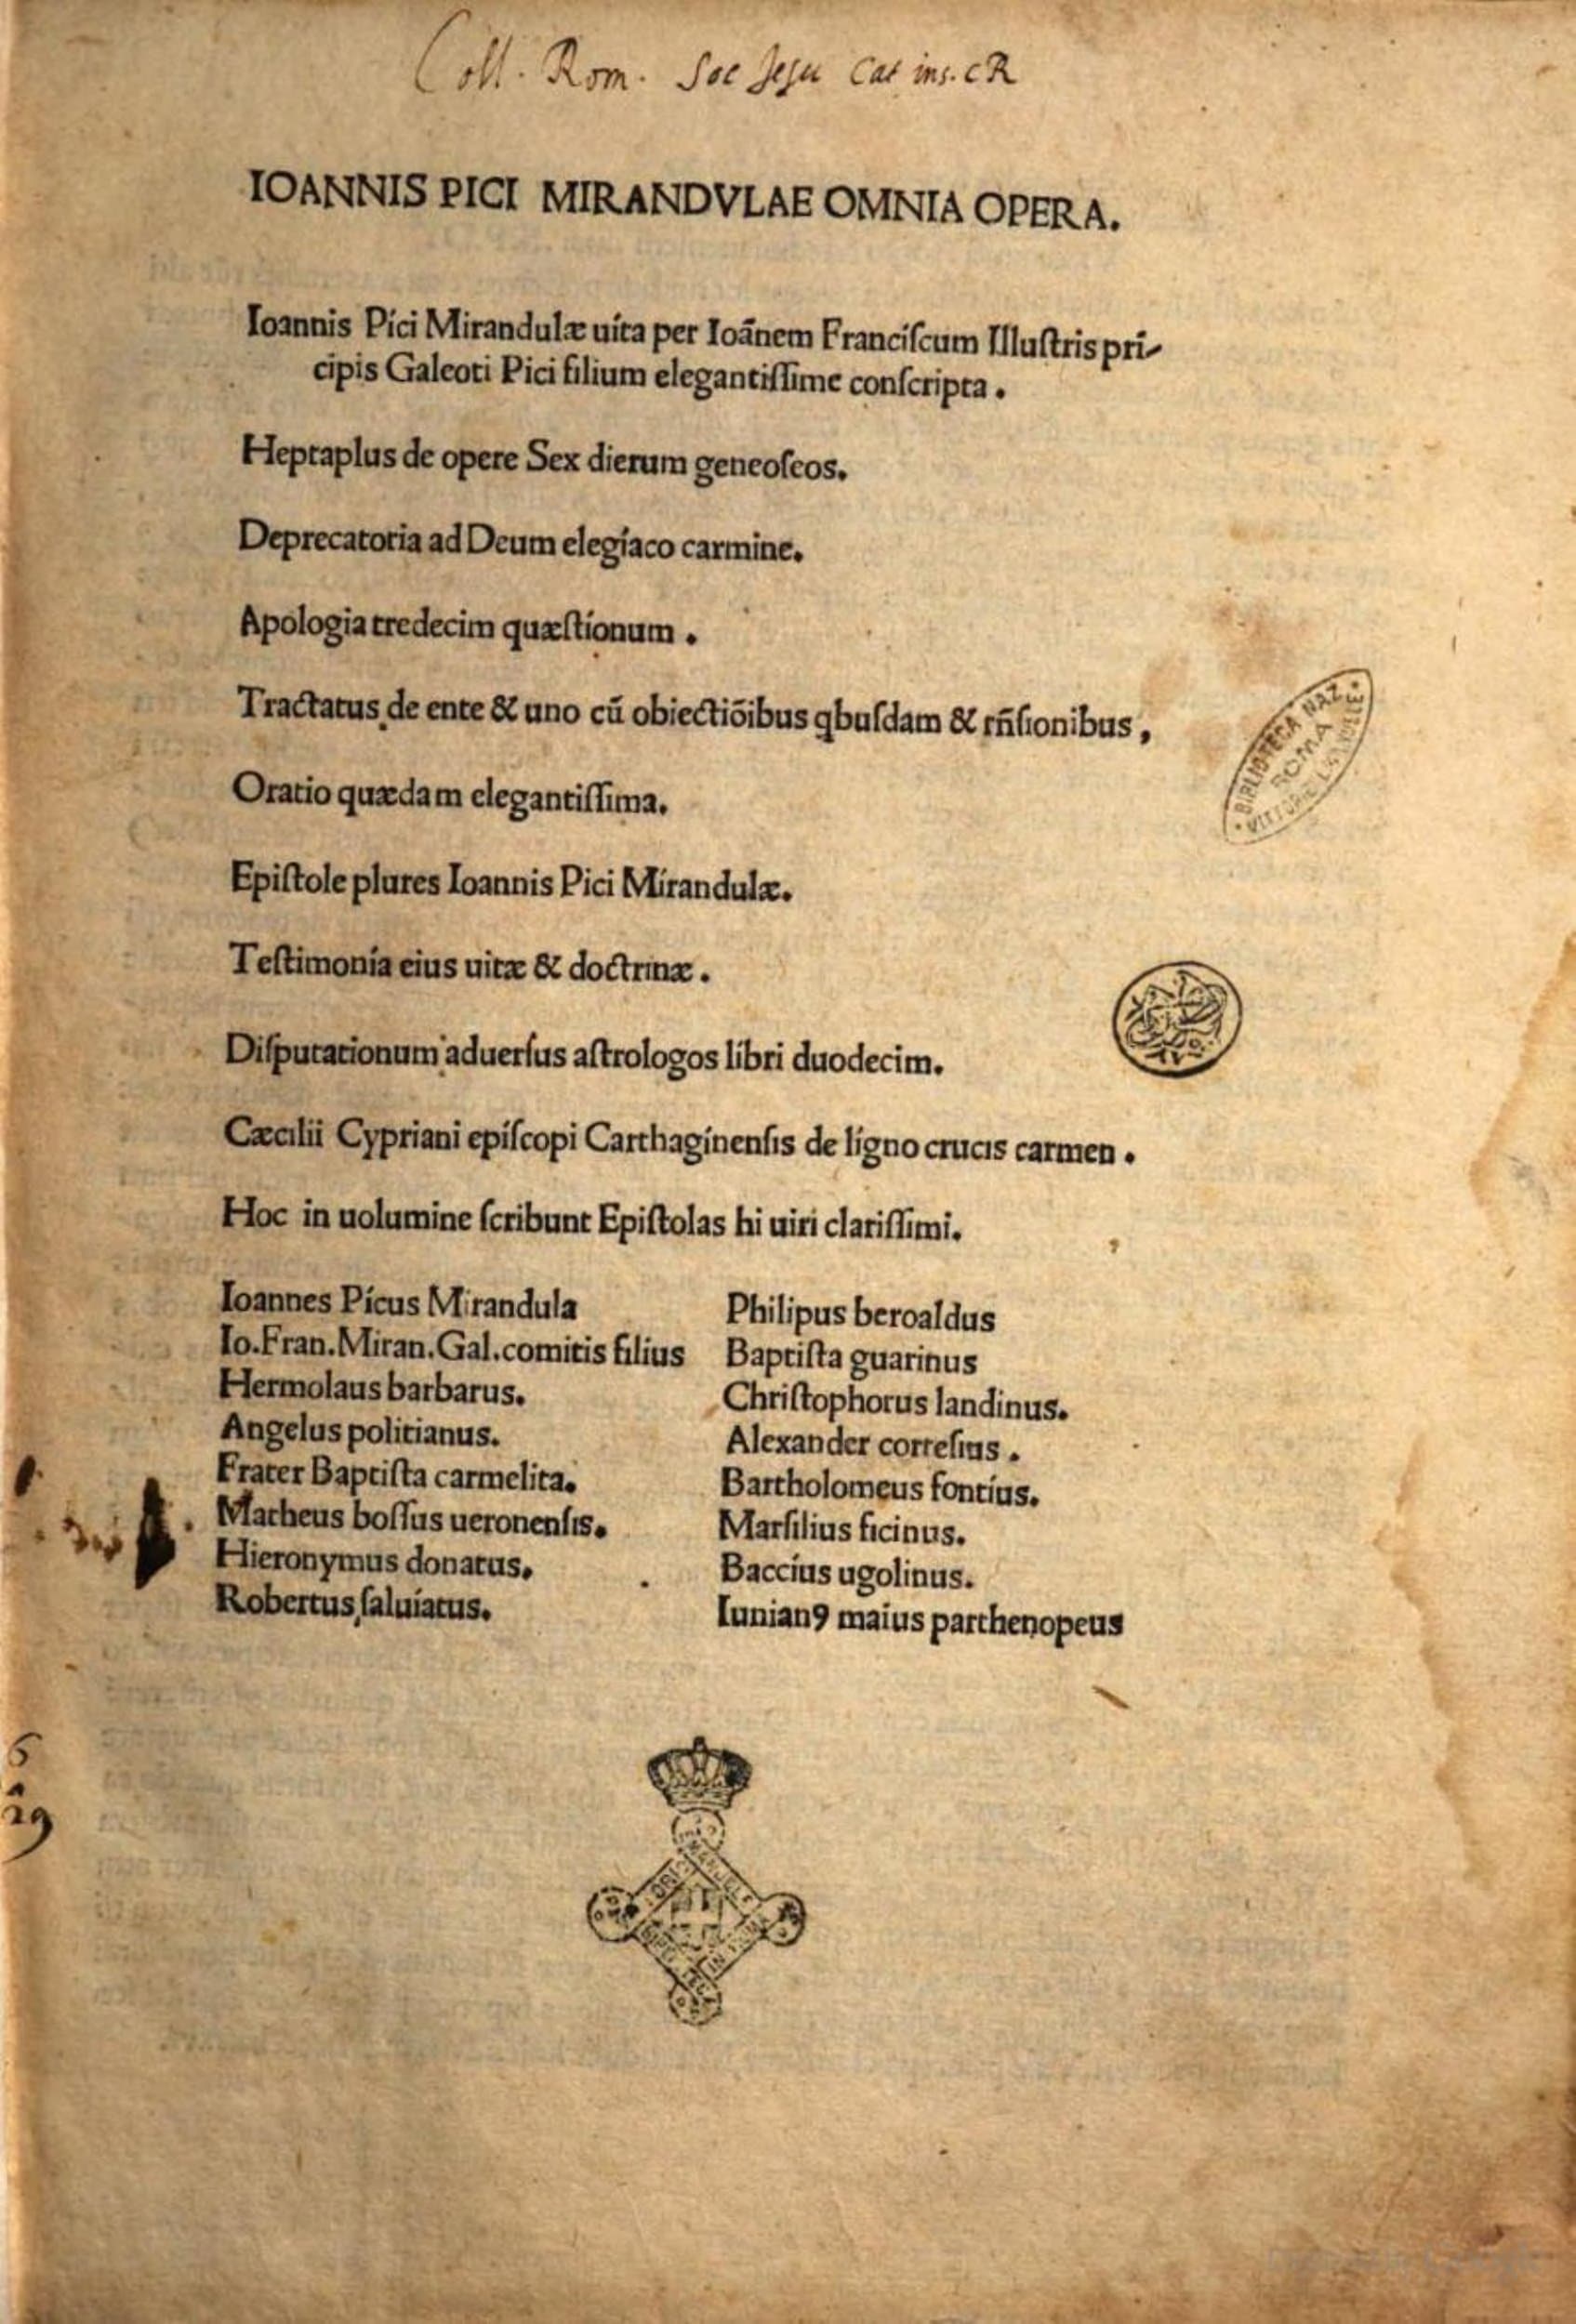 Coll. Rom. Soc Jesu Cat ins. CR
IOANNIS PICI MIRANDVLAE OMNIA OPERA.
Ioannis Pici Mirandulæ uita per Ioānem Franciſcum Illuſtris pri-
cipis Galeoti Pici filium elegantiſſime conſcripta.
Heptaplus de opere Sex dierum geneoſeos.
Deprecatoria ad Deum elegiaco carmine.
Apologia tredecim quæſtionum.
Tractatus de ente & uno cū obiectiōibus qbuſdam & rñſionibus,
Oratio quædam elegantiſſima.
Epiſtole plures Ioannis Pici Mirandulæ.
Teſtimonia eius uitæ & doctrinæ.
Diſputationum aduerſus aſtrologos libri duodecim.
Cæcilii Cypriani epiſcopi Carthaginenſis de ligno crucis carmen.
Hoc in uolumine ſcribunt Epiſtolas hi uiri clariſſimi.
Ioannes Picus Mirandula
Io.Fran.Miran.Gal.comitis filius
Hermolaus barbarus.
Angelus politianus.
Frater Baptiſta carmelita.
Matheus boſſus ueronenſis.
Hieronymus donatus.
Robertus ſaluiatus.
Philipus beroaldus
Baptiſta guarinus
Chriſtophorus landinus.
Alexander corteſius.
Bartholomeus fontius.
Marſilius ficinus.
Baccius ugolinus.
Iunian9 maius parthenopeus
BIBLIOTECA NAZ
ROMA
6
29